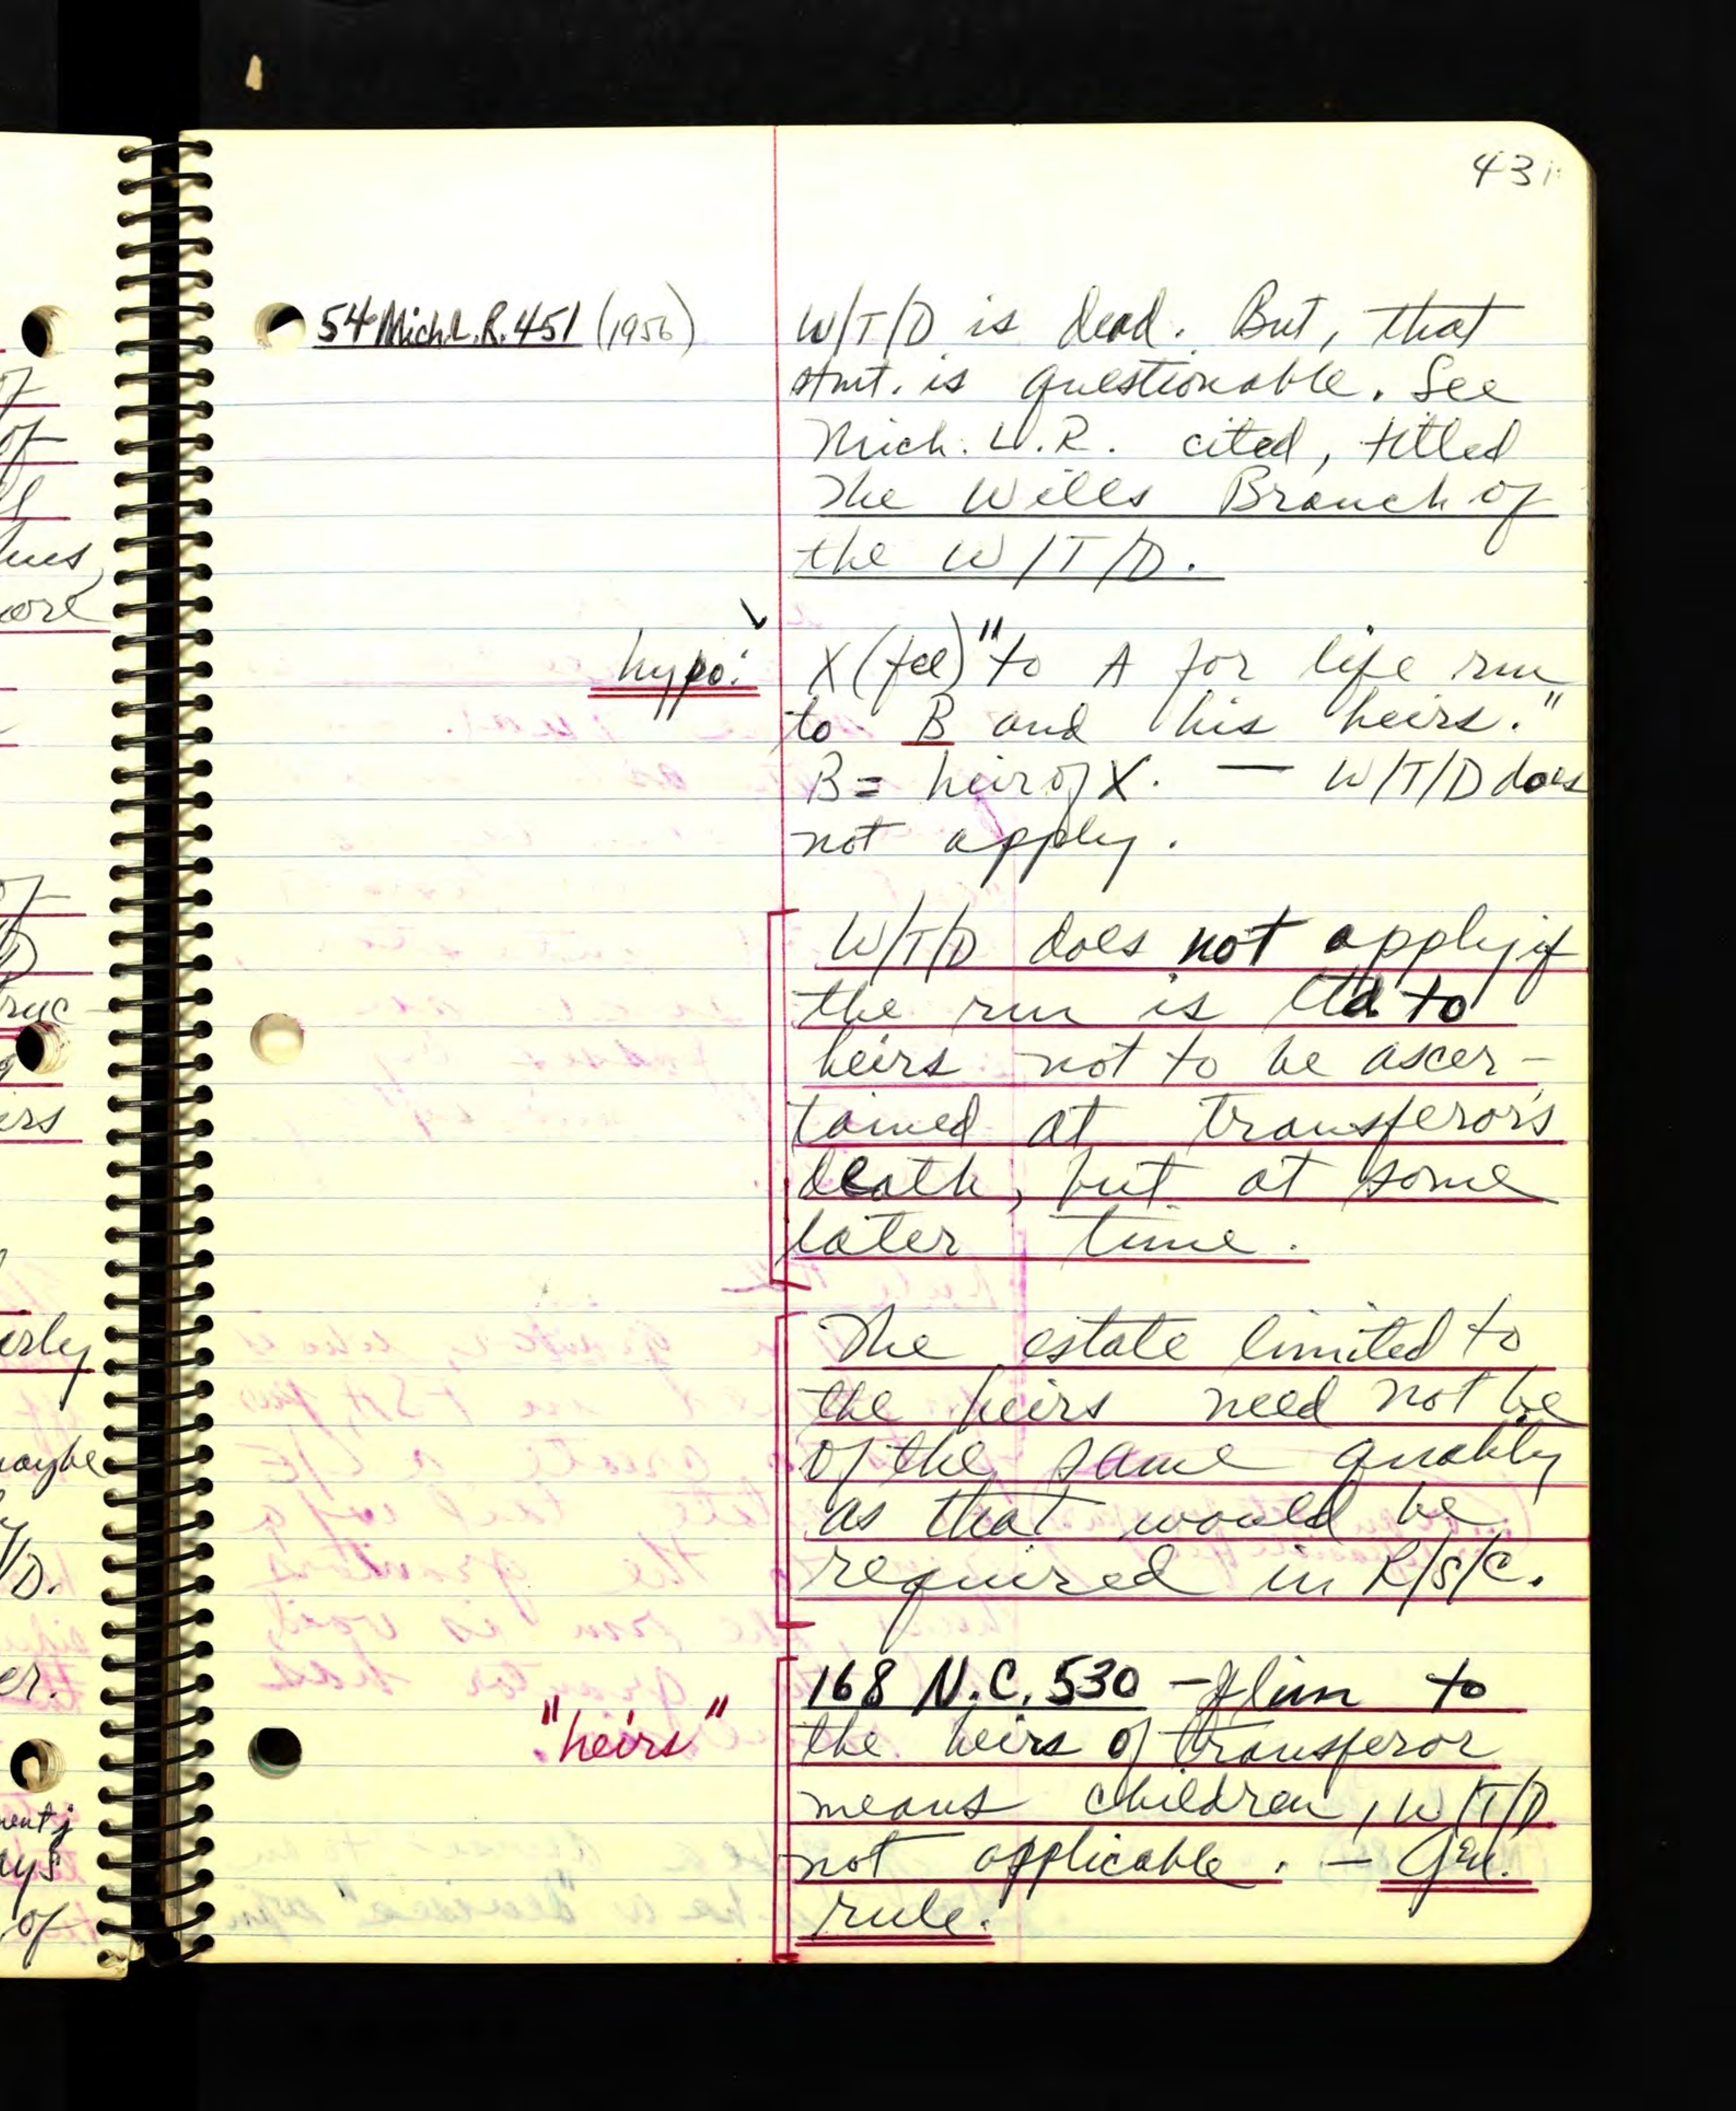 43
54 Mich.L.R. 451 (1956)
W/T/D is dead. But, that
stmt. is questionable. See
Mich. L.R. cited, titled
The Wills Branch of
the W/T/D.
hypo:
X (fee) "to A for life rm
to B and his heirs."
B = heir of X. — W/T/D does
not apply.
W/T/D does not apply if
the rm is ltd to
heirs not to be ascer-
tained at transferor's
death, but at some
later time.
The estate limited to
the heirs need not be
of the same quality
as that would be
required in R/S/C.
"heirs"
168 N.C. 530 - If lim to
the heirs of transferor
means children, W/T/D
not applicable. - Gen.
rule.